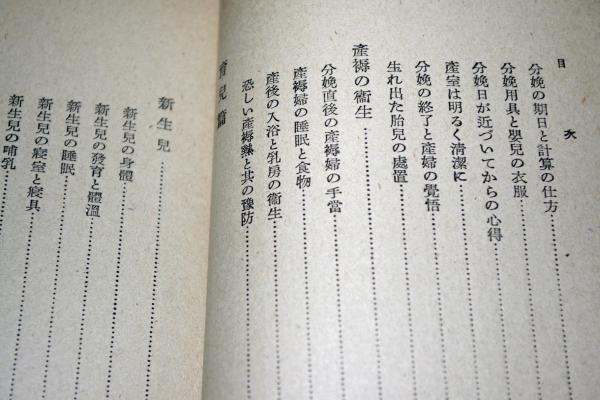 目次
分娩の期日と計算の仕方
分娩用具と嬰兒の衣服
分娩日が近づいてからの心得
產室は明るく清潔に
分娩の終了と產婦の覺悟
生れ出た胎兒の處置
產褥の衞生
分娩直後の產褥婦の手當
產褥婦の睡眠と食物
產後の入浴と乳房の衞生
恐しい產褥熱と其の豫防
育兒篇
新生兒
新生兒の身體
新生兒の發育と體溫
新生兒の睡眠
新生兒の寢室と寢具
新生兒の哺乳